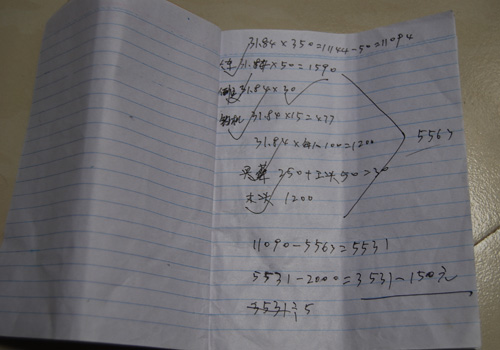 31.84×350=11144-50=11094
车 31.84×50=1590
31.84×30
31.84×15=477
31.84× 100=1200
350+ 50=30
1200
5563
11090-5563=5531
5531-2000=3531-1500元
3531÷5